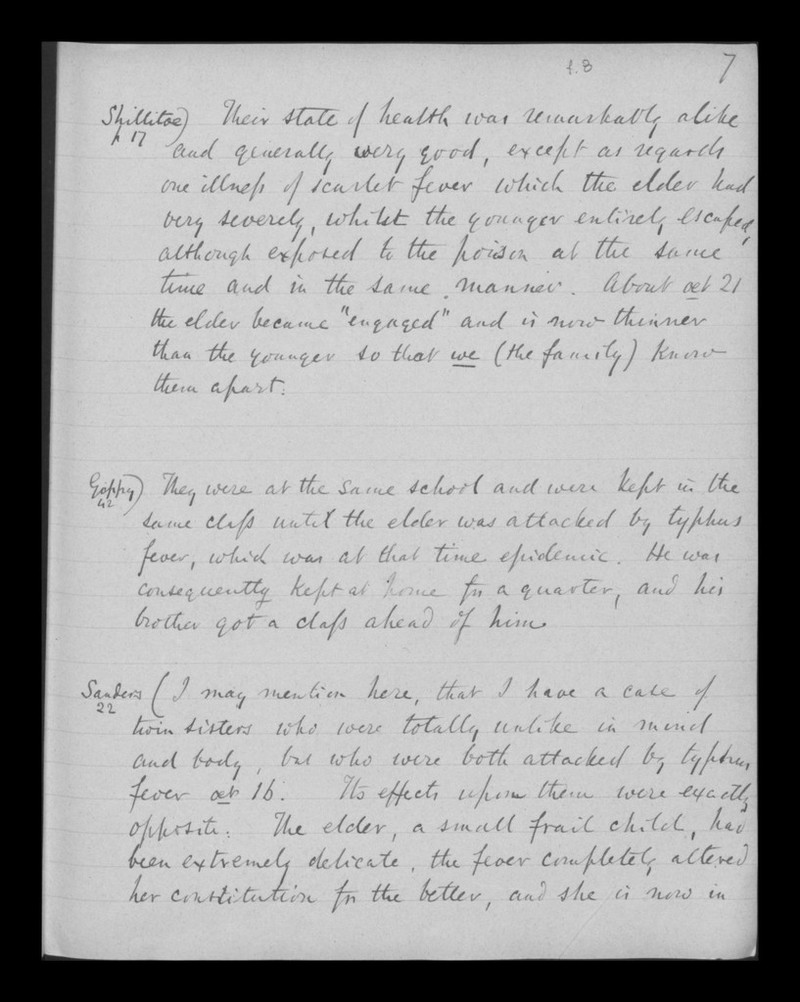 f. 8
7
Shillitoe) Their state of health was remarkably alike
17 and generally very good, except as regards
one illness of scarlet fever which the elder had
very severely, whilst the younger entirely escaped,
although exposed to the poison at the same
time and in the same manner. About æt 21
the elder became "engaged" and is now thinner
than the younger so that we (the family) know
them apart.
They were at the same school and were kept in the
42
same class until the elder was attacked by typhus
fever, which was at that time epidemic. He was
consequently kept at home for a quarter, and his
brother got a class ahead of him
Sanders (I may mention here, that I have a case of
22
twin sisters who were totally unlike in mind
and body, but who were both attacked by typhus
fever æt 16. Its effects upon them were exactly
opposite. The elder, a small frail child, had
been extremely delicate, the fever completely altered
her constitution for the better, and she is now in